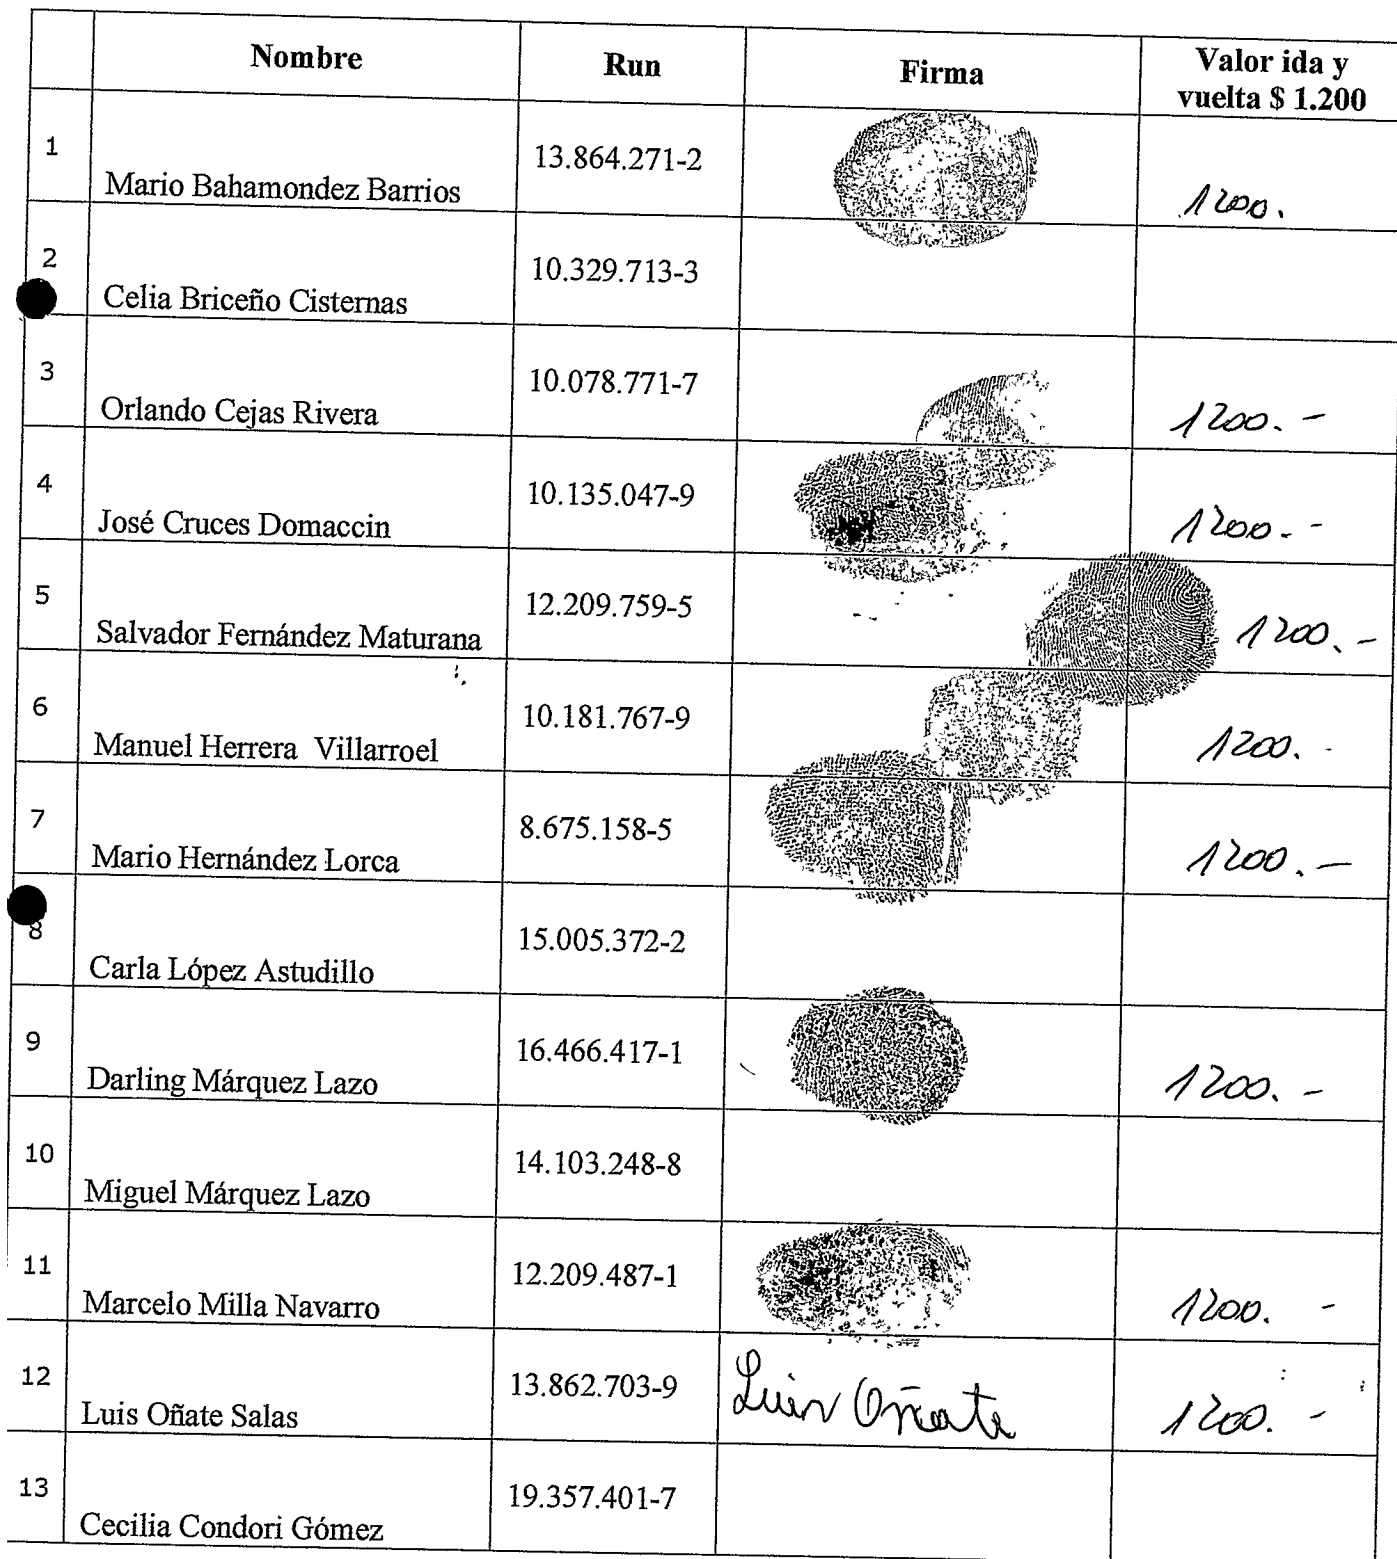 Nombre Run Firma Valor ida y
vuelta $ 1.200
1 Mario Bahamondez Barrios 13.864.271-2 1200.
2 Celia Briceño Cisternas 10.329.713-3
3 Orlando Cejas Rivera 10.078.771-7 1200.-
4 José Cruces Domaccin 10.135.047-9 1200.-
5 Salvador Fernández Maturana 12.209.759-5 1200.-
6 Manuel Herrera Villarroel 10.181.767-9 1200.-
7 Mario Hernández Lorca 8.675.158-5 1200.-
8 Carla López Astudillo 15.005.372-2
9 Darling Márquez Lazo 16.466.417-1 1200.-
10 Miguel Márquez Lazo 14.103.248-8
11 Marcelo Milla Navarro 12.209.487-1 1200.-
12 Luis Oñate Salas 13.862.703-9 Luis Oñate 1200.-
13 Cecilia Condori Gómez 19.357.401-7